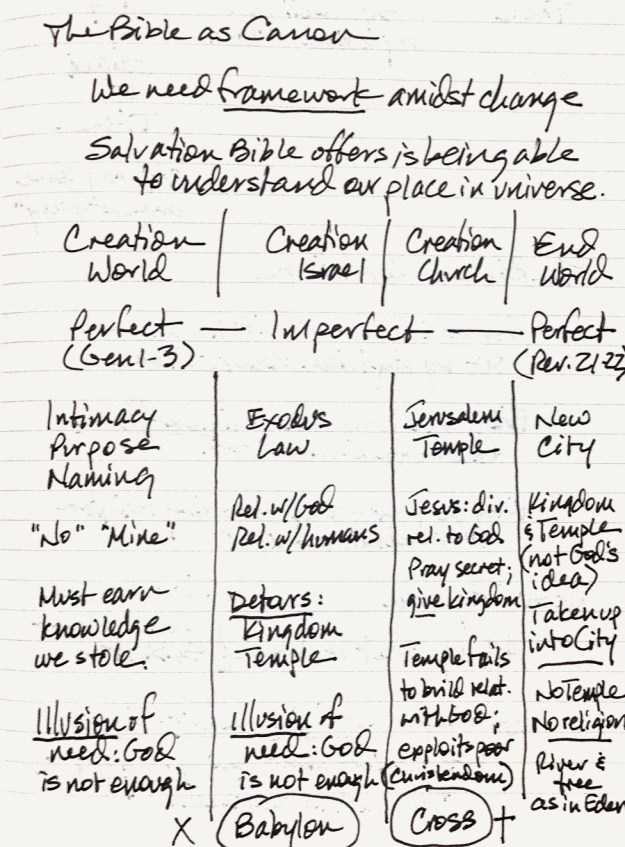 The Bible as Canon
We need framework amidst change
Salvation Bible offers is being able
to understand our place in universe.
Creation
World
Creation
Israel
Creation
Church
End
World
Perfect — Imperfect — Perfect
(Gen 1-3)
(Rev. 21-22)
Intimacy
Purpose
Naming
"No" "Mine"
Must earn
knowledge
we stole.
Illusion of
need: God
is not enough
X
Exodus
Law
Rel. w/God
Rel. w/humans
Detours:
Kingdom
Temple
Illusion of
need: God
is not enough
Babylon
Jerusalem
Temple
Jesus: div.
rel. to God
Pray secret;
give kingdom
Temple fails
to build relat.
with God;
exploits poor
(Christendom)
Cross +
New
City
Kingdom
& Temple
(not God's
idea)
Taken up
into City
No Temple
No religion
River &
tree
as in Eden